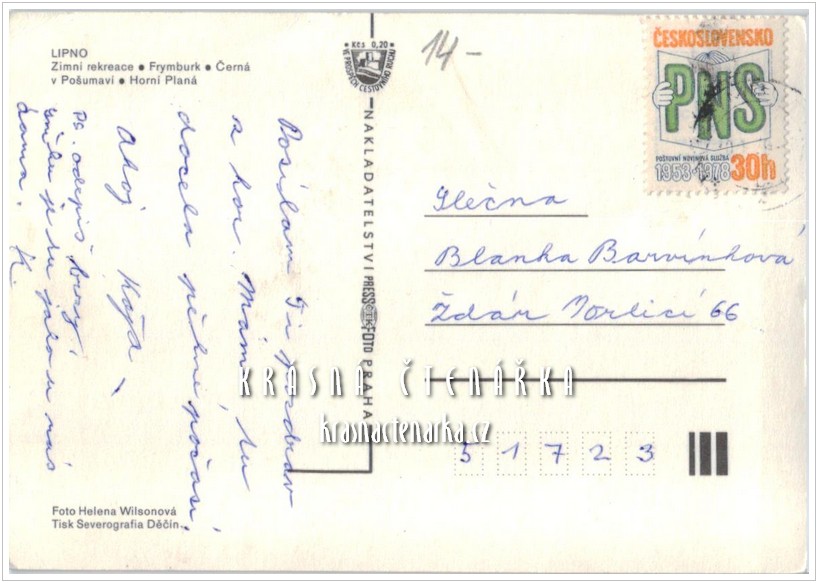 LIPNO
Zimní rekreace ● Frymburk ● Černá
v Pošumaví ● Horní Planá
Kčs 0,20
VE PROSPĚCH CESTOVNÍHO RUCHU
14-
ČESKOSLOVENSKO
PNS
POŠTOVNÍ NOVINOVÁ SLUŽBA
1953-1978 30h
NAKLADATELSTVÍ PRESSFOTO PRAHA
Posílám Ti pozdrav
z hor. Máme tu
docela pěkné počasí.
Ahoj Kája
PS. odepiš brzy,
jako u nás
doma. K.
Slečna
Blanka Barvínková
Žďár Orlicí 66
KRÁSNÁ ČTENÁŘKA
krasnactenarka.cz
5 1 7 2 3
Foto Helena Wilsonová
Tisk Severografia Děčín